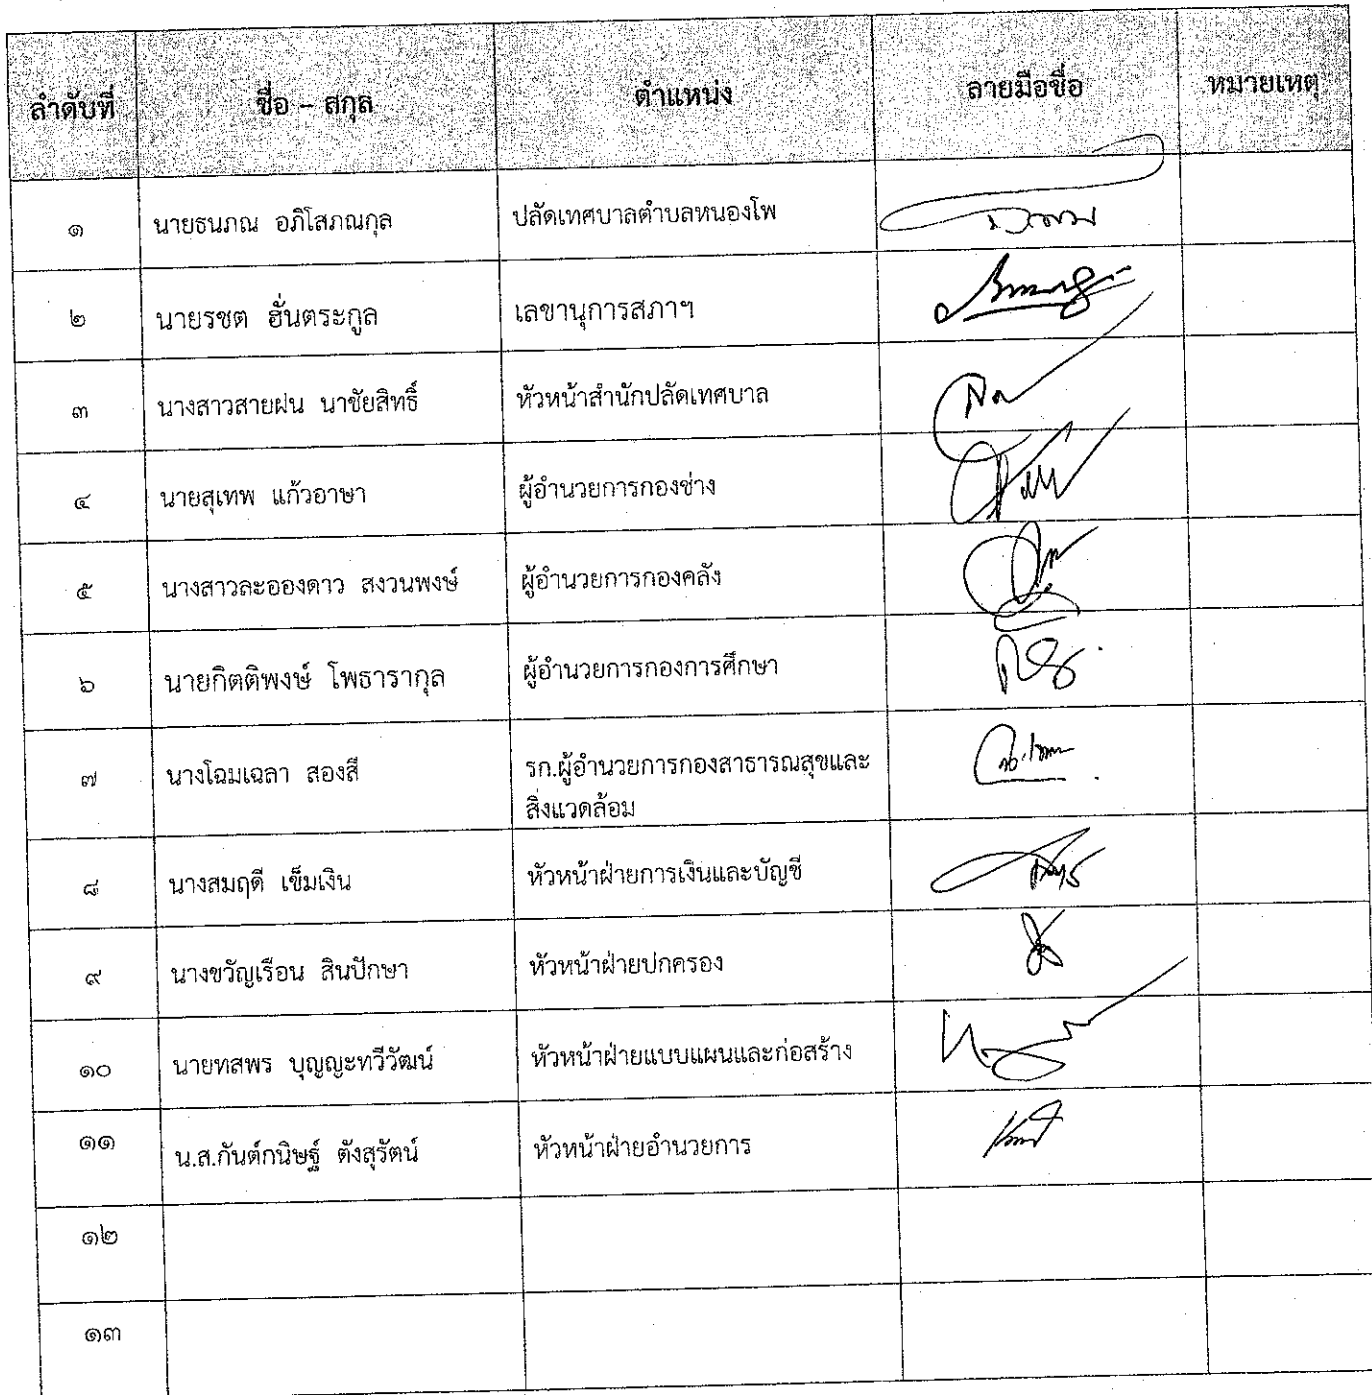 ลำดับที่ ชื่อ – สกุล ตำแหน่ง ลายมือชื่อ หมายเหตุ
๑ นายธนภณ อภิโสภณกุล ปลัดเทศบาลตำบลหนองโพ
๒ นายรชต ฮั่นตระกูล เลขานุการสภาฯ
๓ นางสาวสายฝน นาชัยสิทธิ์ หัวหน้าสำนักปลัดเทศบาล
๔ นายสุเทพ แก้วอาษา ผู้อำนวยการกองช่าง
๕ นางสาวละอองดาว สงวนพงษ์ ผู้อำนวยการกองคลัง
๖ นายกิตติพงษ์ โพธารากุล ผู้อำนวยการกองการศึกษา
๗ นางโฉมเฉลา สองสี รก.ผู้อำนวยการกองสาธารณสุขและ
สิ่งแวดล้อม
๘ นางสมฤดี เข็มเงิน หัวหน้าฝ่ายการเงินและบัญชี
๙ นางขวัญเรือน สินปักษา หัวหน้าฝ่ายปกครอง
๑๐ นายทสพร บุญญะทวีวัฒน์ หัวหน้าฝ่ายแบบแผนและก่อสร้าง
๑๑ น.ส.กันต์กนิษฐ์ ตังสุรัตน์ หัวหน้าฝ่ายอำนวยการ
๑๒
๑๓